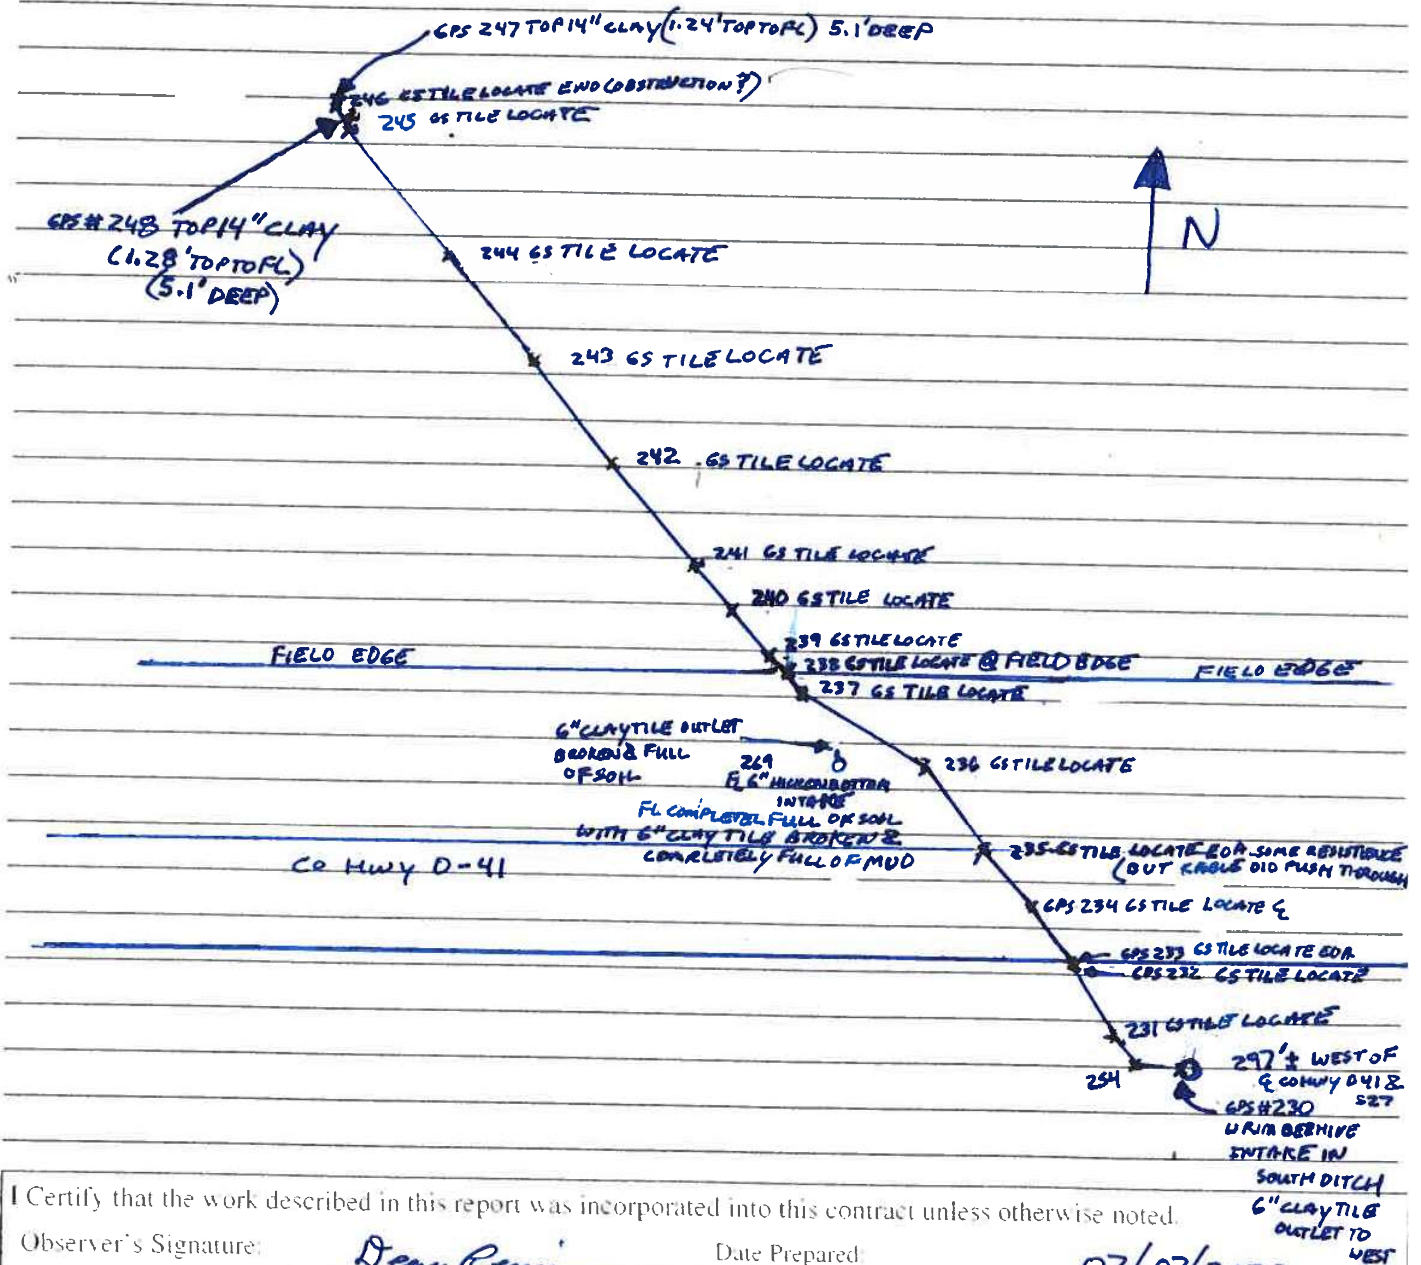 GPS 247 TOP 14" CLAY (1.24' TOP TO FL) 5.1' DEEP
246 GS TILE LOCATE END (OBSTRUCTION?)
245 GS TILE LOCATE
GPS #248 TOP 14" CLAY
(1.28' TOP TO FL)
(5.1' DEEP)
N
244 GS TILE LOCATE
243 GS TILE LOCATE
242 GS TILE LOCATE
241 GS TILE LOCATE
240 GS TILE LOCATE
239 GS TILE LOCATE
FIELD EDGE
238 GS TILE LOCATE @ FIELD EDGE
FIELD EDGE
237 GS TILE LOCATE
6" CLAY TILE OUTLET
BROKEN & FULL
OF SOIL
269
FL 6" HICKENBOTTOM
INTAKE
FL COMPLETEL FULL OF SOIL
WITH 6" CLAY TILE BROKEN &
COMPLETELY FULL OF MUD
236 GS TILE LOCATE
CO HWY D-41
235 GS TILE LOCATE EOR SOME RESISTENCE
(BUT KABLE DID PUSH THROUGH
GPS 234 GS TILE LOCATE ℄
GPS 233 GS TILE LOCATE EOR
GPS 232 GS TILE LOCATE
231 GS TILE LOCATE
254
297'± WEST OF
℄ CO HWY D41 &
S27
GPS #230
RIM BEEHIVE
INTAKE IN
SOUTH DITCH
6" CLAY TILE
OUTLET TO
WEST
I Certify that the work described in this report was incorporated into this contract unless otherwise noted.
Observer's Signature:
Date Prepared: